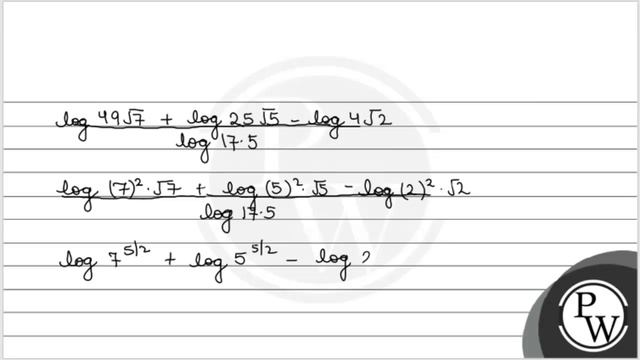 log 49√7 + log 25√5 - log 4√2
log 17.5
log (7)² · √7 + log (5)² · √5 - log (2)² · √2
log 17.5
log 7^5/2 + log 5^5/2 - log
P
W